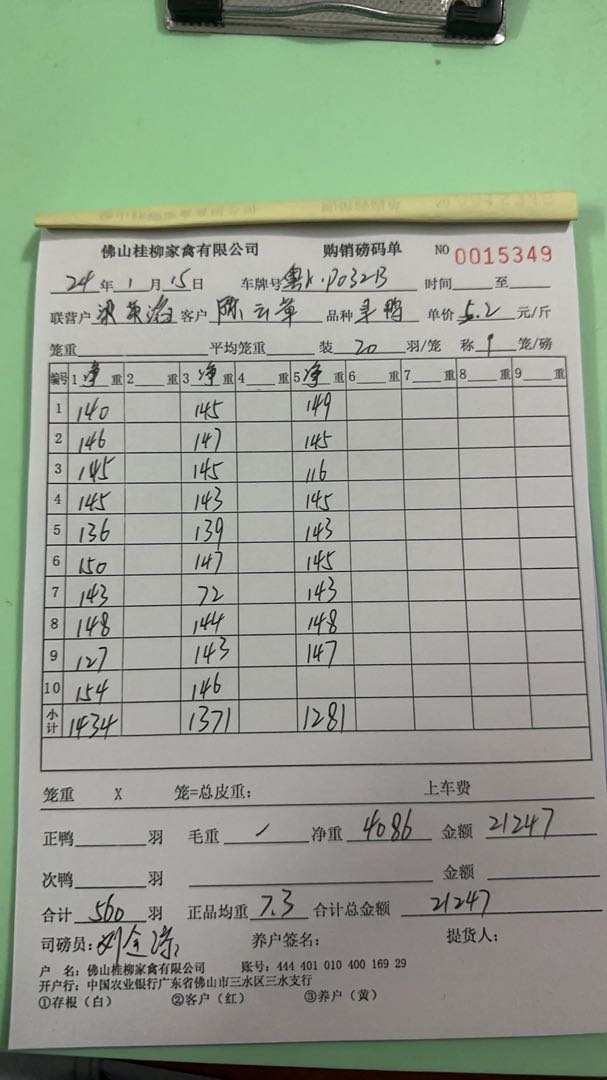 佛山桂柳家禽有限公司 购销磅码单 NO 0015349
24年1月15日 车牌号粤 P032B 时间 至
联营户 客户 陈云章 品种 鸭 单价5.2元/斤
笼重 平均笼重 装20羽/笼 称1笼/磅
编号 1净重 2 重 3净重 4 重 5净重 6 重 7 重 8 重 9 重
1 140 145 149
2 146 147 145
3 145 145 116
4 145 143 145
5 136 139 143
6 150 147 145
7 143 72 143
8 148 144 148
9 127 143 147
10 154 146
小计 1434 1371 1281
笼重 X 笼=总皮重: 上车费
正鸭 羽 毛重 / 净重 4086 金额 21247
次鸭 羽 金额
合计 560 羽 正品均重 7.3 合计总金额 21247
司磅员:刘 养户签名: 提货人:
户 名:佛山桂柳家禽有限公司 账号:444 401 010 400 169 29
开户行:中国农业银行广东省佛山市三水区三水支行
①存根(白) ②客户(红) ③养户(黄)